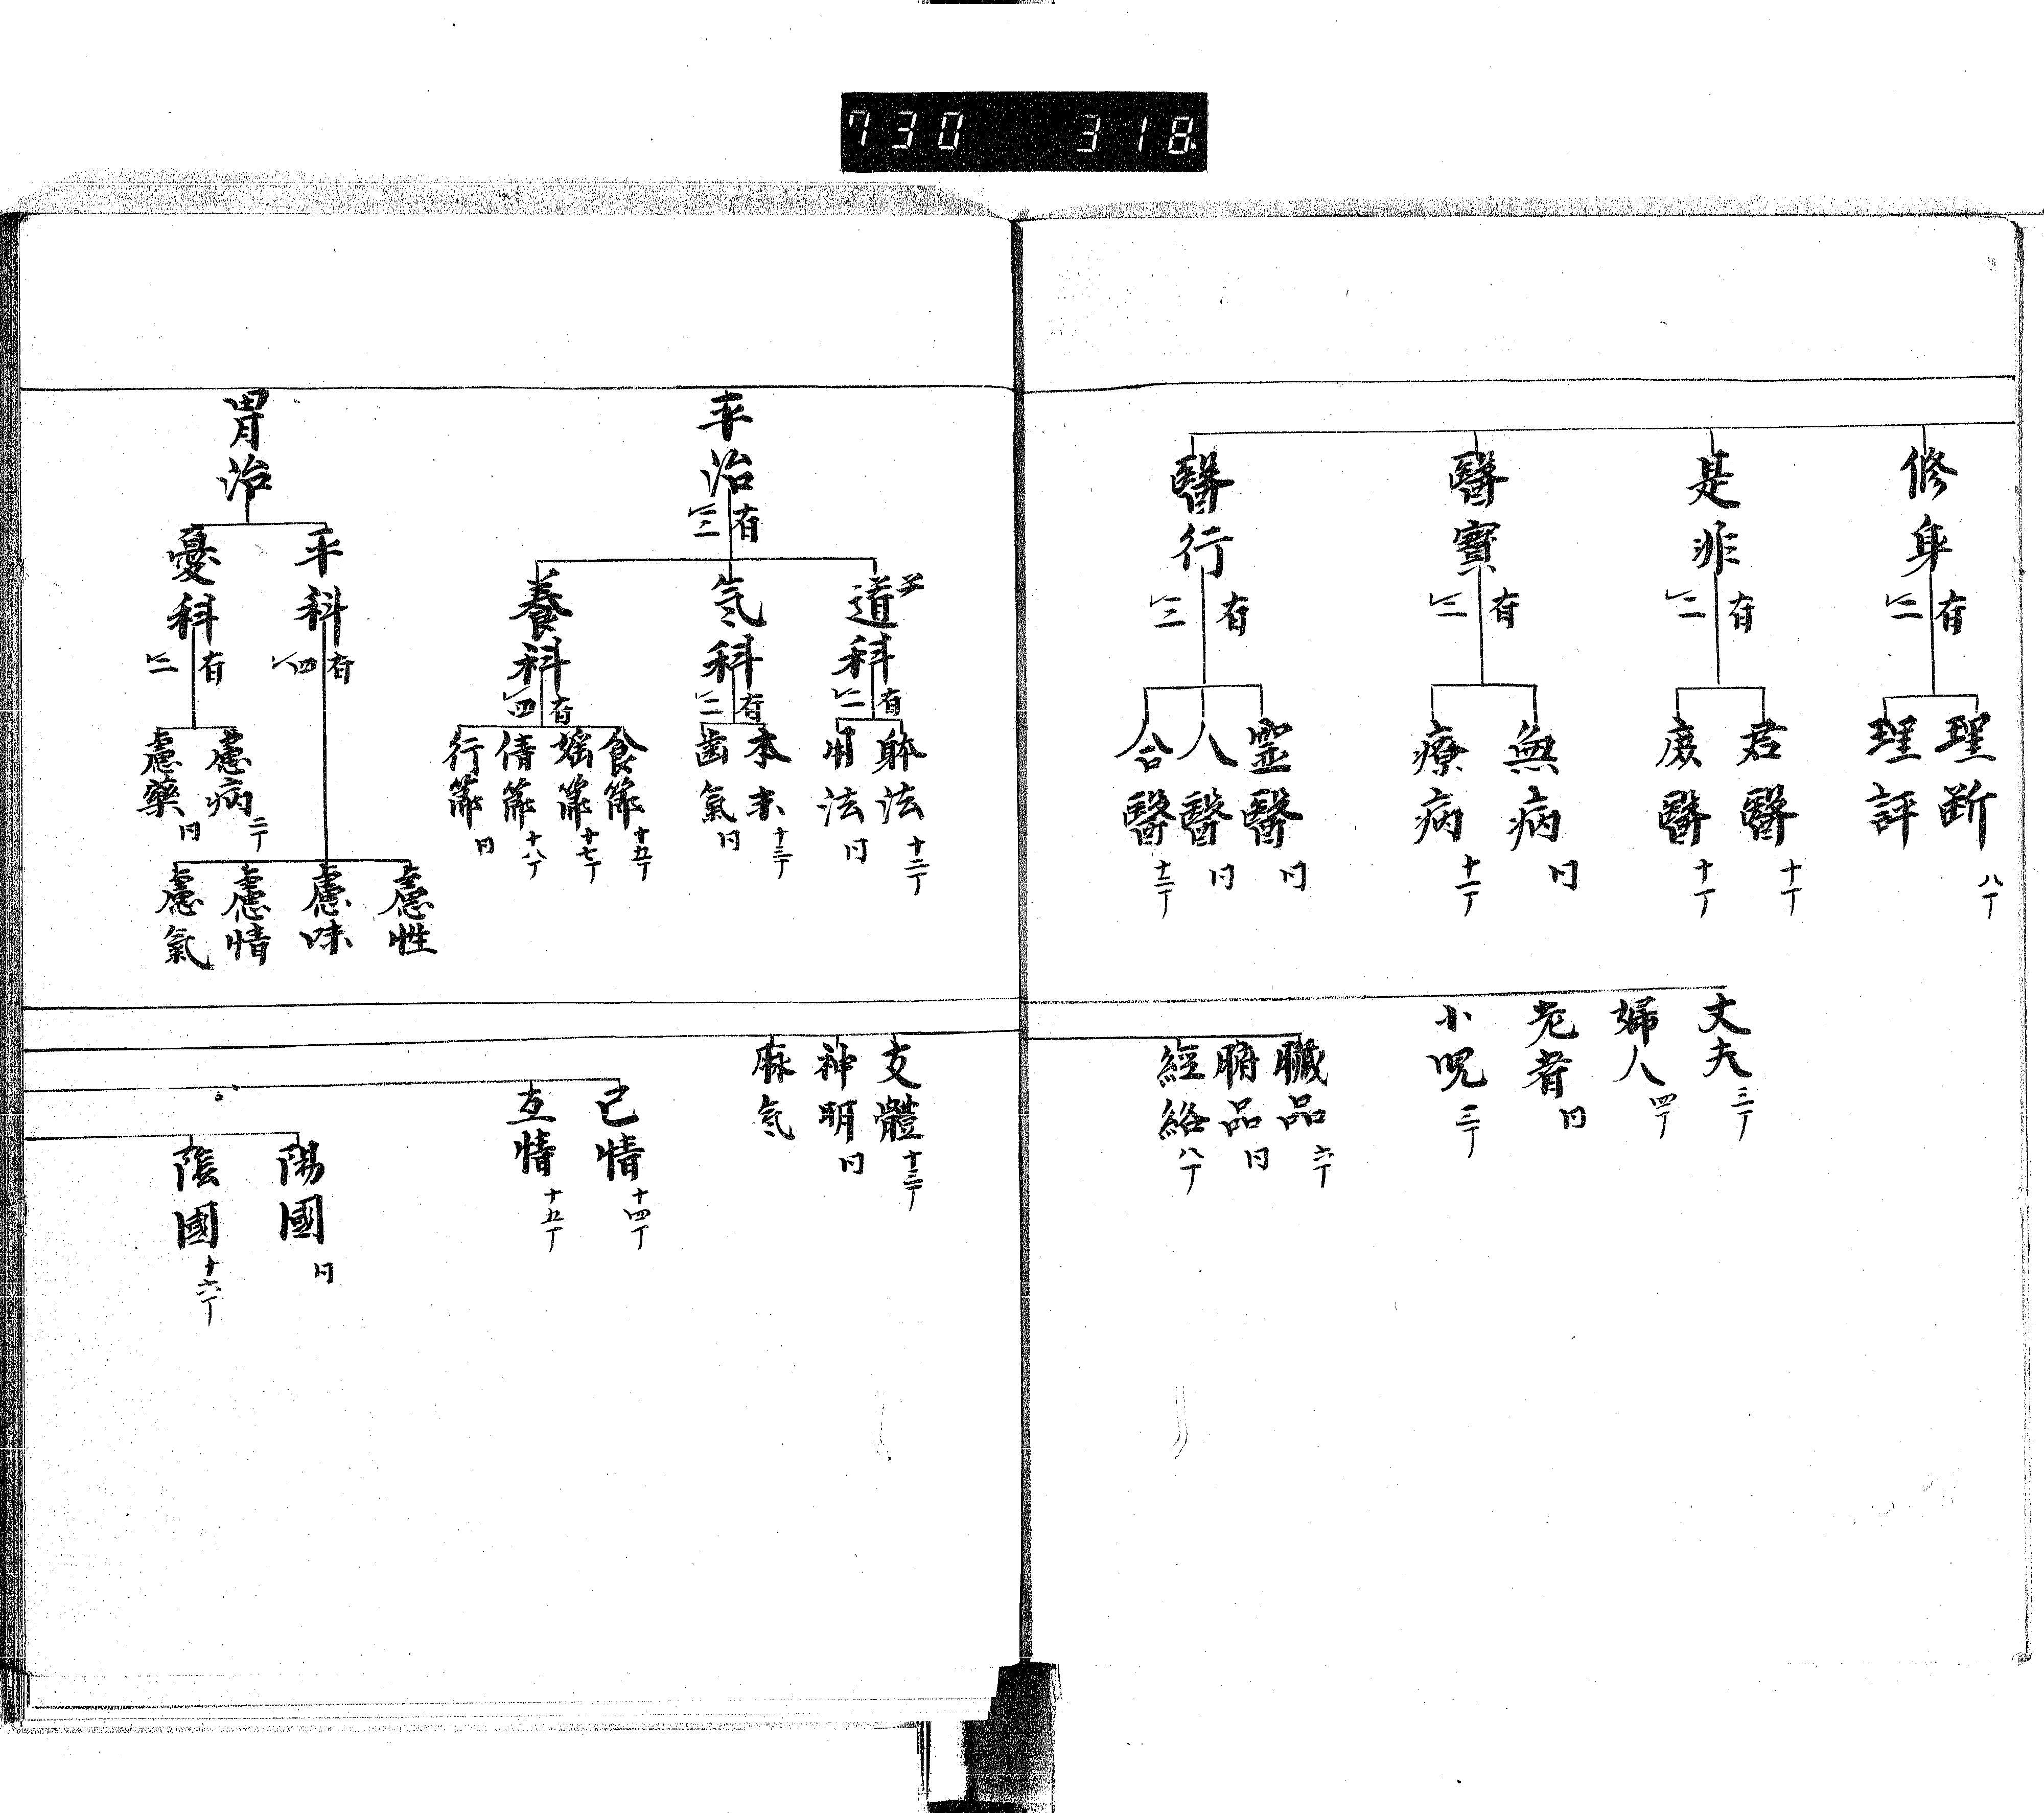 730 318
修身
有二
理断 八丁
理評
是非
有二
君醫 十丁
庶醫 十一丁
醫寳
有二
無病 同
療病 十一丁
醫行
有三
靈醫 同
人醫 同
合醫 十二丁
丈夫 三丁
婦人 四丁
老者 同
小児
臓品 六丁
腑品 同
經絡 八丁
平治
有三
道科
有二
躰法 十二丁
用法 同
気科
有二
本末 十三丁
歯氣 同
養科
有四
食節 十五丁
婬節 十七丁
情節 十八丁
行節 同
胃治
平科
有四
慮性
慮味
慮情
慮氣
憂科
有二
慮病 二丁
慮藥 同
支體 十三丁
神明 同
脉気
己情 十四丁
互情 十五丁
陽國 同
陰國 十六丁